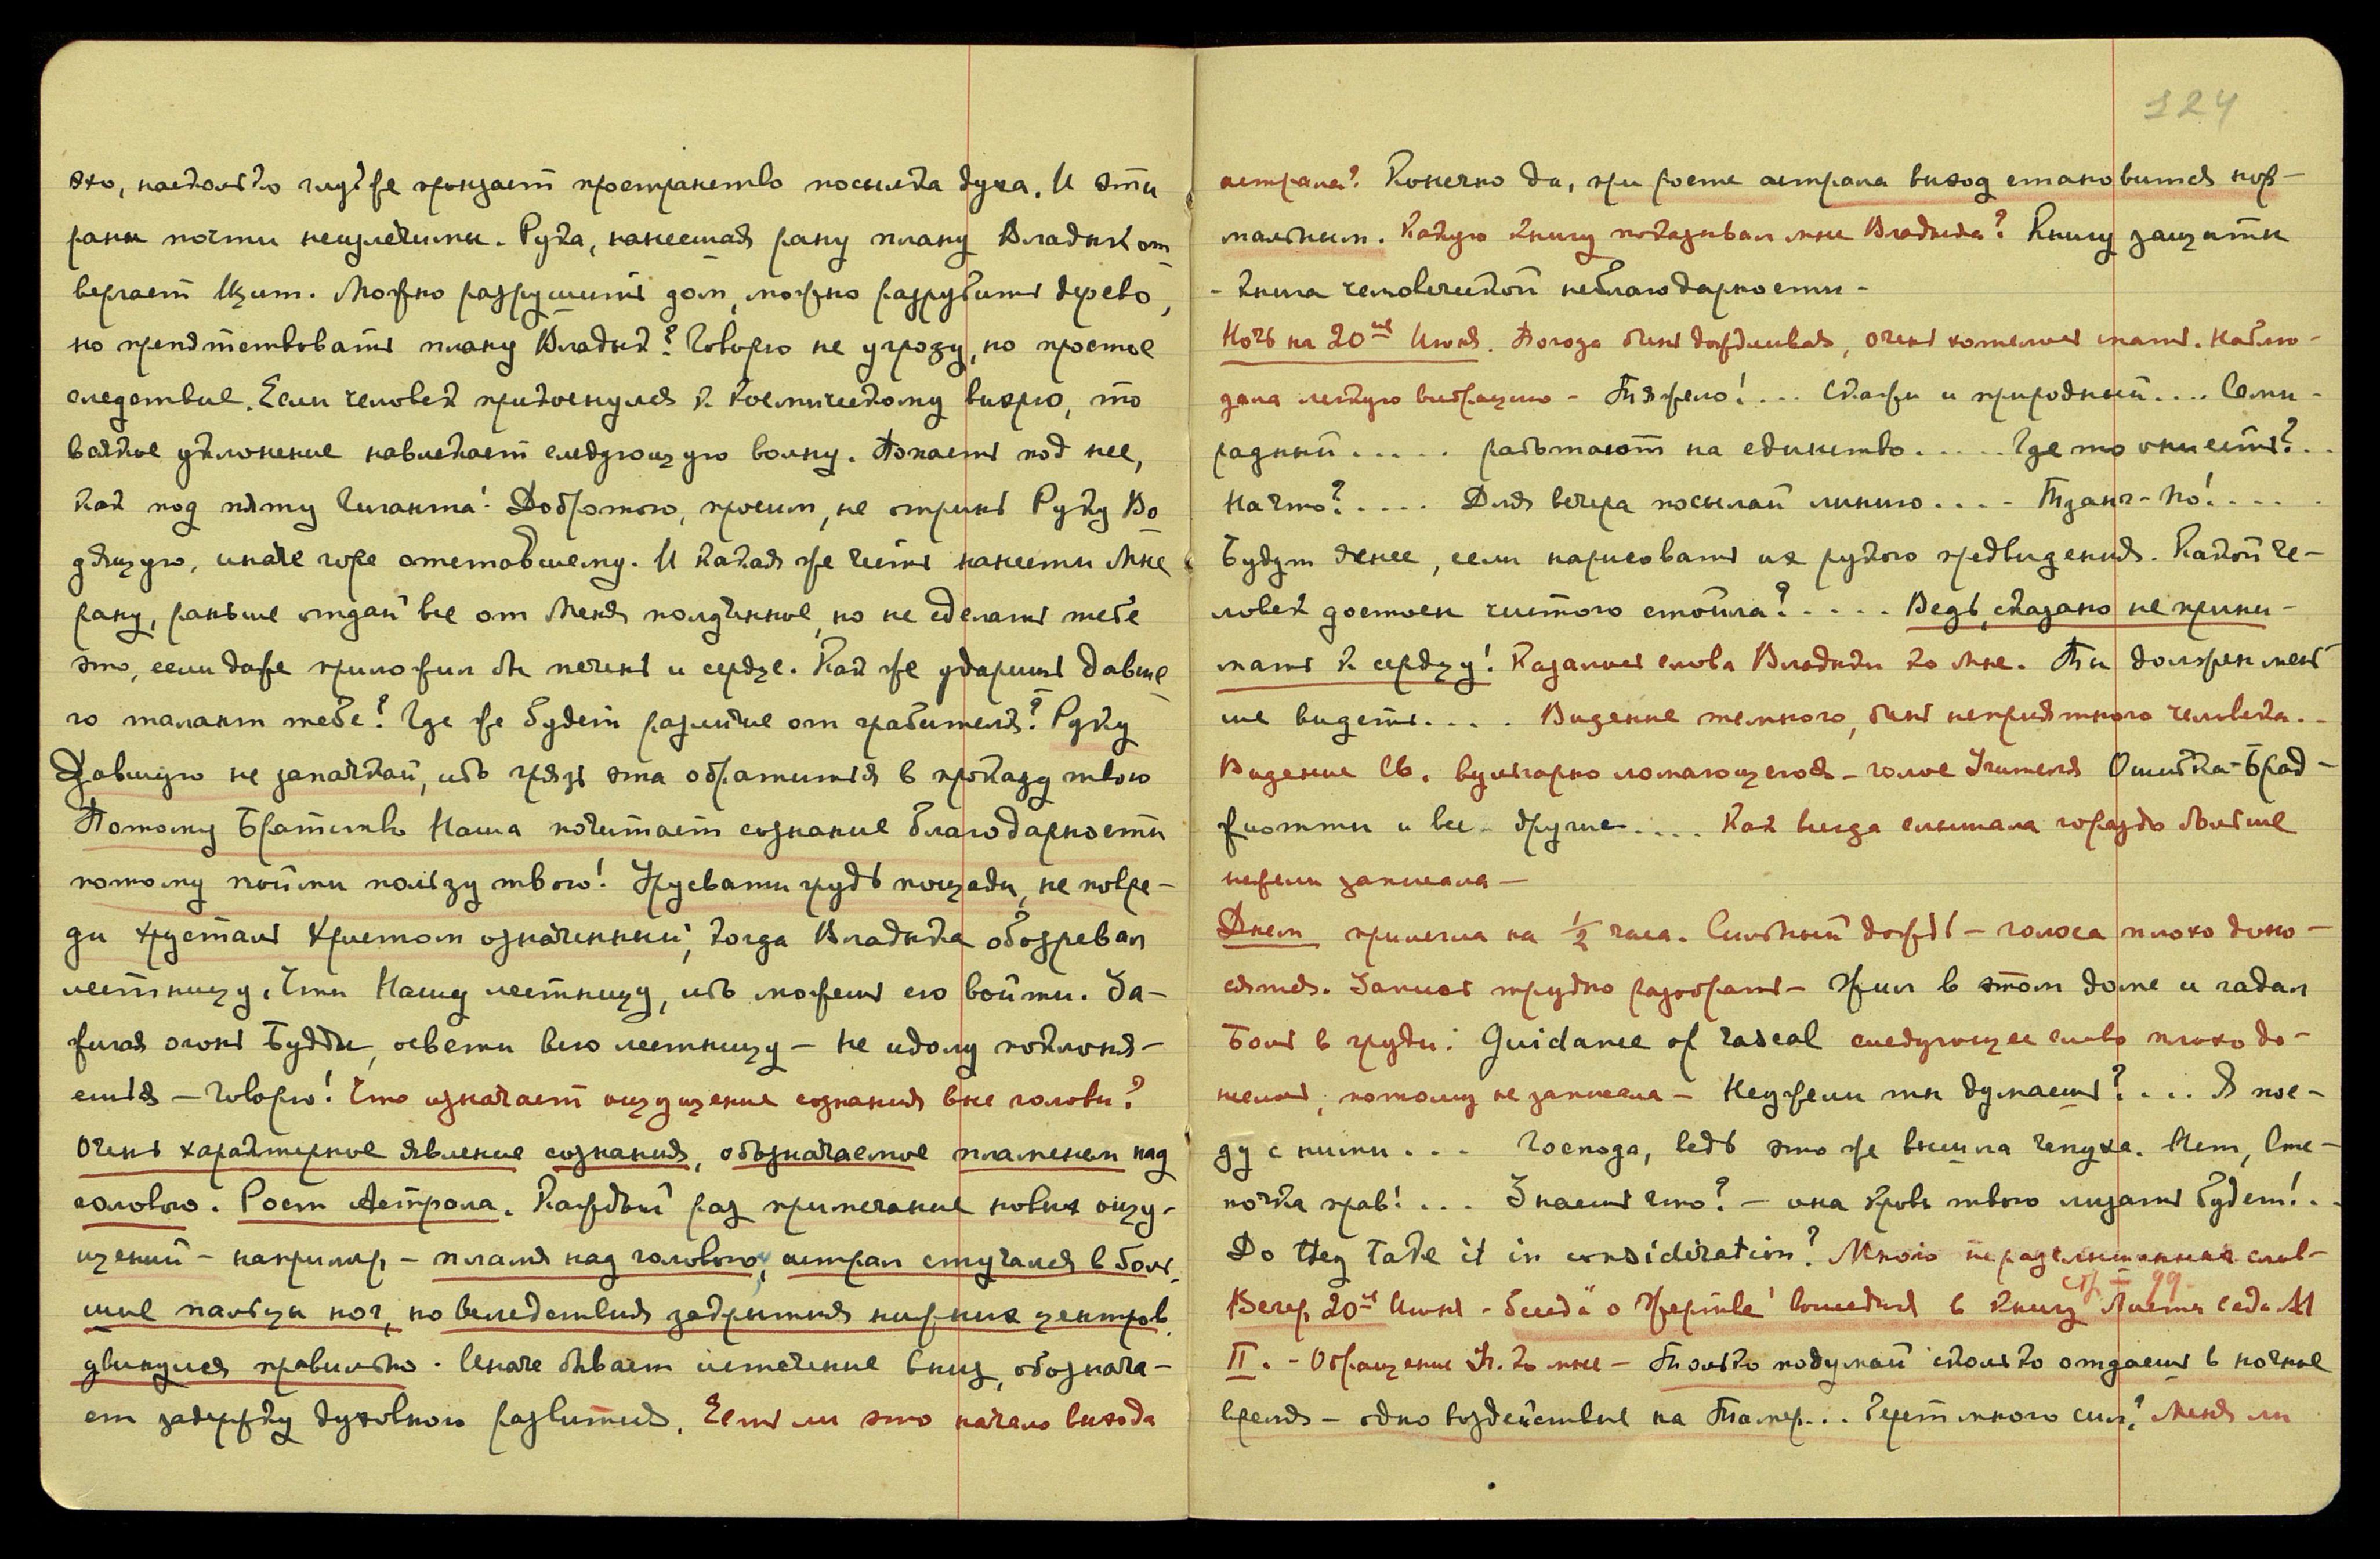 эхо, настолько глубже пронзает пространство посылка духа. И эти
раны почти неизлечимы. Рука, нанесшая рану плану Владык от
вергает Щит. Можно разрушить дом, можно разрубить дерево,
но препятствовать плану Владык? Говорю не угрозу, но простое
следствие. Если человек прикоснулся к космическому вихрю, то
всякое уклонение навлекает следующую волну. Попасть под нее,
как под пяту гиганта! Добротою, просим, не отринь Руку Во
дящую, иначе горе отставшему. И какая же честь нанести Мне
рану, раньше отдай все от Меня полученное, но не сделать тебе
это, если даже приложил бы печень и сердце. Как же ударишь давше
го талант тебе? Где же будет различие от грабителя? Руку
Давшую не запачкай, ибо грязь эта обратится в проказу твою
Потому Братство Наша почитает сознание благодарности
потому пойми пользу твою! Урусвати грудь пощади, не повре-
ди хрусталь Христом означенный, когда Владыка обозревал
лестницу. Чти Нашу лестницу, ибо можешь ею войти. За-
жигая огонь Будды, освети всю лестницу — Не идолу поклоня-
ешься — Говорю! Что означает ощущение сознания вне головы?
Очень характерное явление сознания, обозначаемое пламенем над
головою. Рост Астрала. Каждый раз примечание новых ощу-
щений — например — пламя над головою, астрал стучался в боль-
шие пальцы ног, но вследствия закрытия нижних центров
двинулся правильно. Иначе бывает истечение вниз, обознача-
ет задержку духовного развития. Есть ли это начало выхода
124
астрала? Конечно да, при росте астрала выход становится нор-
мальным. Какую книгу показывал мне Владыка? Книгу защиты
- книга человеческой неблагодарности -
Ночь на 20ое Июня. Погода очень дождливая, очень хотелось спать. Наблю-
дала легкую вибрацию - Тяжело!... Скажи и природный.... Семи-
радный..... работают на единство..... Где то они есть?..
На что?.... Для вечера посылай линию.... Тзанг-По!....
Будут яснее, если нарисовать их рукою предвидения. Какой че-
ловек достоен чистого стойла?.... Ведь сказано не прини-
мать к сердцу! Казались слова Владыки ко мне. Ты должен мень
ше видеть.... Видение темного, очень неприятного человека..
Видение Св. вульгарно ломающегося - голос Учителя Ошибка-Брад-
жиотти и все другие.... Как всегда слышала гораздо больше
нежели записала —
Днем прилегла на ½ часа. Сильный дождь — голоса плохо доно-
сятся. Запись трудно разобрать — Жил в этом доме и гадал
Боль в груди: Guidance of rascal следующее слово плохо до-
неслось, потому не записала — Неужели ты думаешь?... Я пое-
ду с ними... Господа, ведь это же вышла чепуха. Нет, Сте-
почка прав!... Знаешь что? — она кровь твою лизать будет!..
Do they take it in consideration? Много нерасслышанных слов-
стр. 99.
Вечер 20ое Июня - беседа о Жертве вошедшая в книгу Листы Сада М
II. - Обращение Уч. ко мне — Только подумай сколько отдаешь в ночное
время — одно воздействие на Тампер... Берет много сил? Меня ли